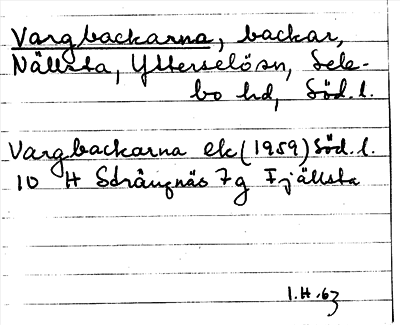 Vargbackarna, backar,
Nällsta, Ytterselösn, Sele-
bo hd, Söd.l.
Vargbackarna ek (1959) Söd.l.
10 H Strängnäs 7g Fjällsta
1.H.63